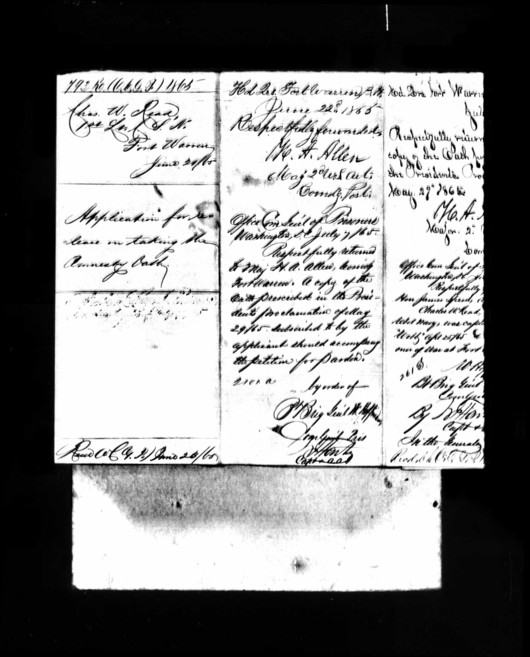 792 R. (C.G.P.) 1865
Chas. W. Read,
1st Lt. C.S.N.
Fort Warren
June 20/65
Application for re
lease on taking the
Amnesty Oath
Recd (C.G.P.) June 24/65
Hd. Qrs. Fort Warren B.H.
June 22d 1865
Respectfully forwarded
H. A. Allen
Maj 2d U.S. Art.
Comdg Post.
Office Com Genl of Prisoners
Washington, D.C. July 7/65
Respectfully returned
to Maj H. A. Allen, Comdg
Fort Warren. A copy of the
Oath prescribed in the Presi-
dent's proclamation of May
29/65 subscribed to by the
applicant should accompany
the petition for pardon.
by order of
Bt Brig Genl W. Hoffman
Com Genl Pris
Capt & AAG
Hd. Qrs. Fort Warren
Respectfully return
copy of the Oath
the President's Pro
May 29th 1865
H. A.
Major 2d
Com
Office Com Genl of
Washington, D.C.
Respectfully
Hon James
Charles W. Read,
Rebel Navy, was capt
"Webb" Apl 25/65
oner of War at Fort
W. H
Bt Brig Genl
Com Genl
By
Capt &
In the